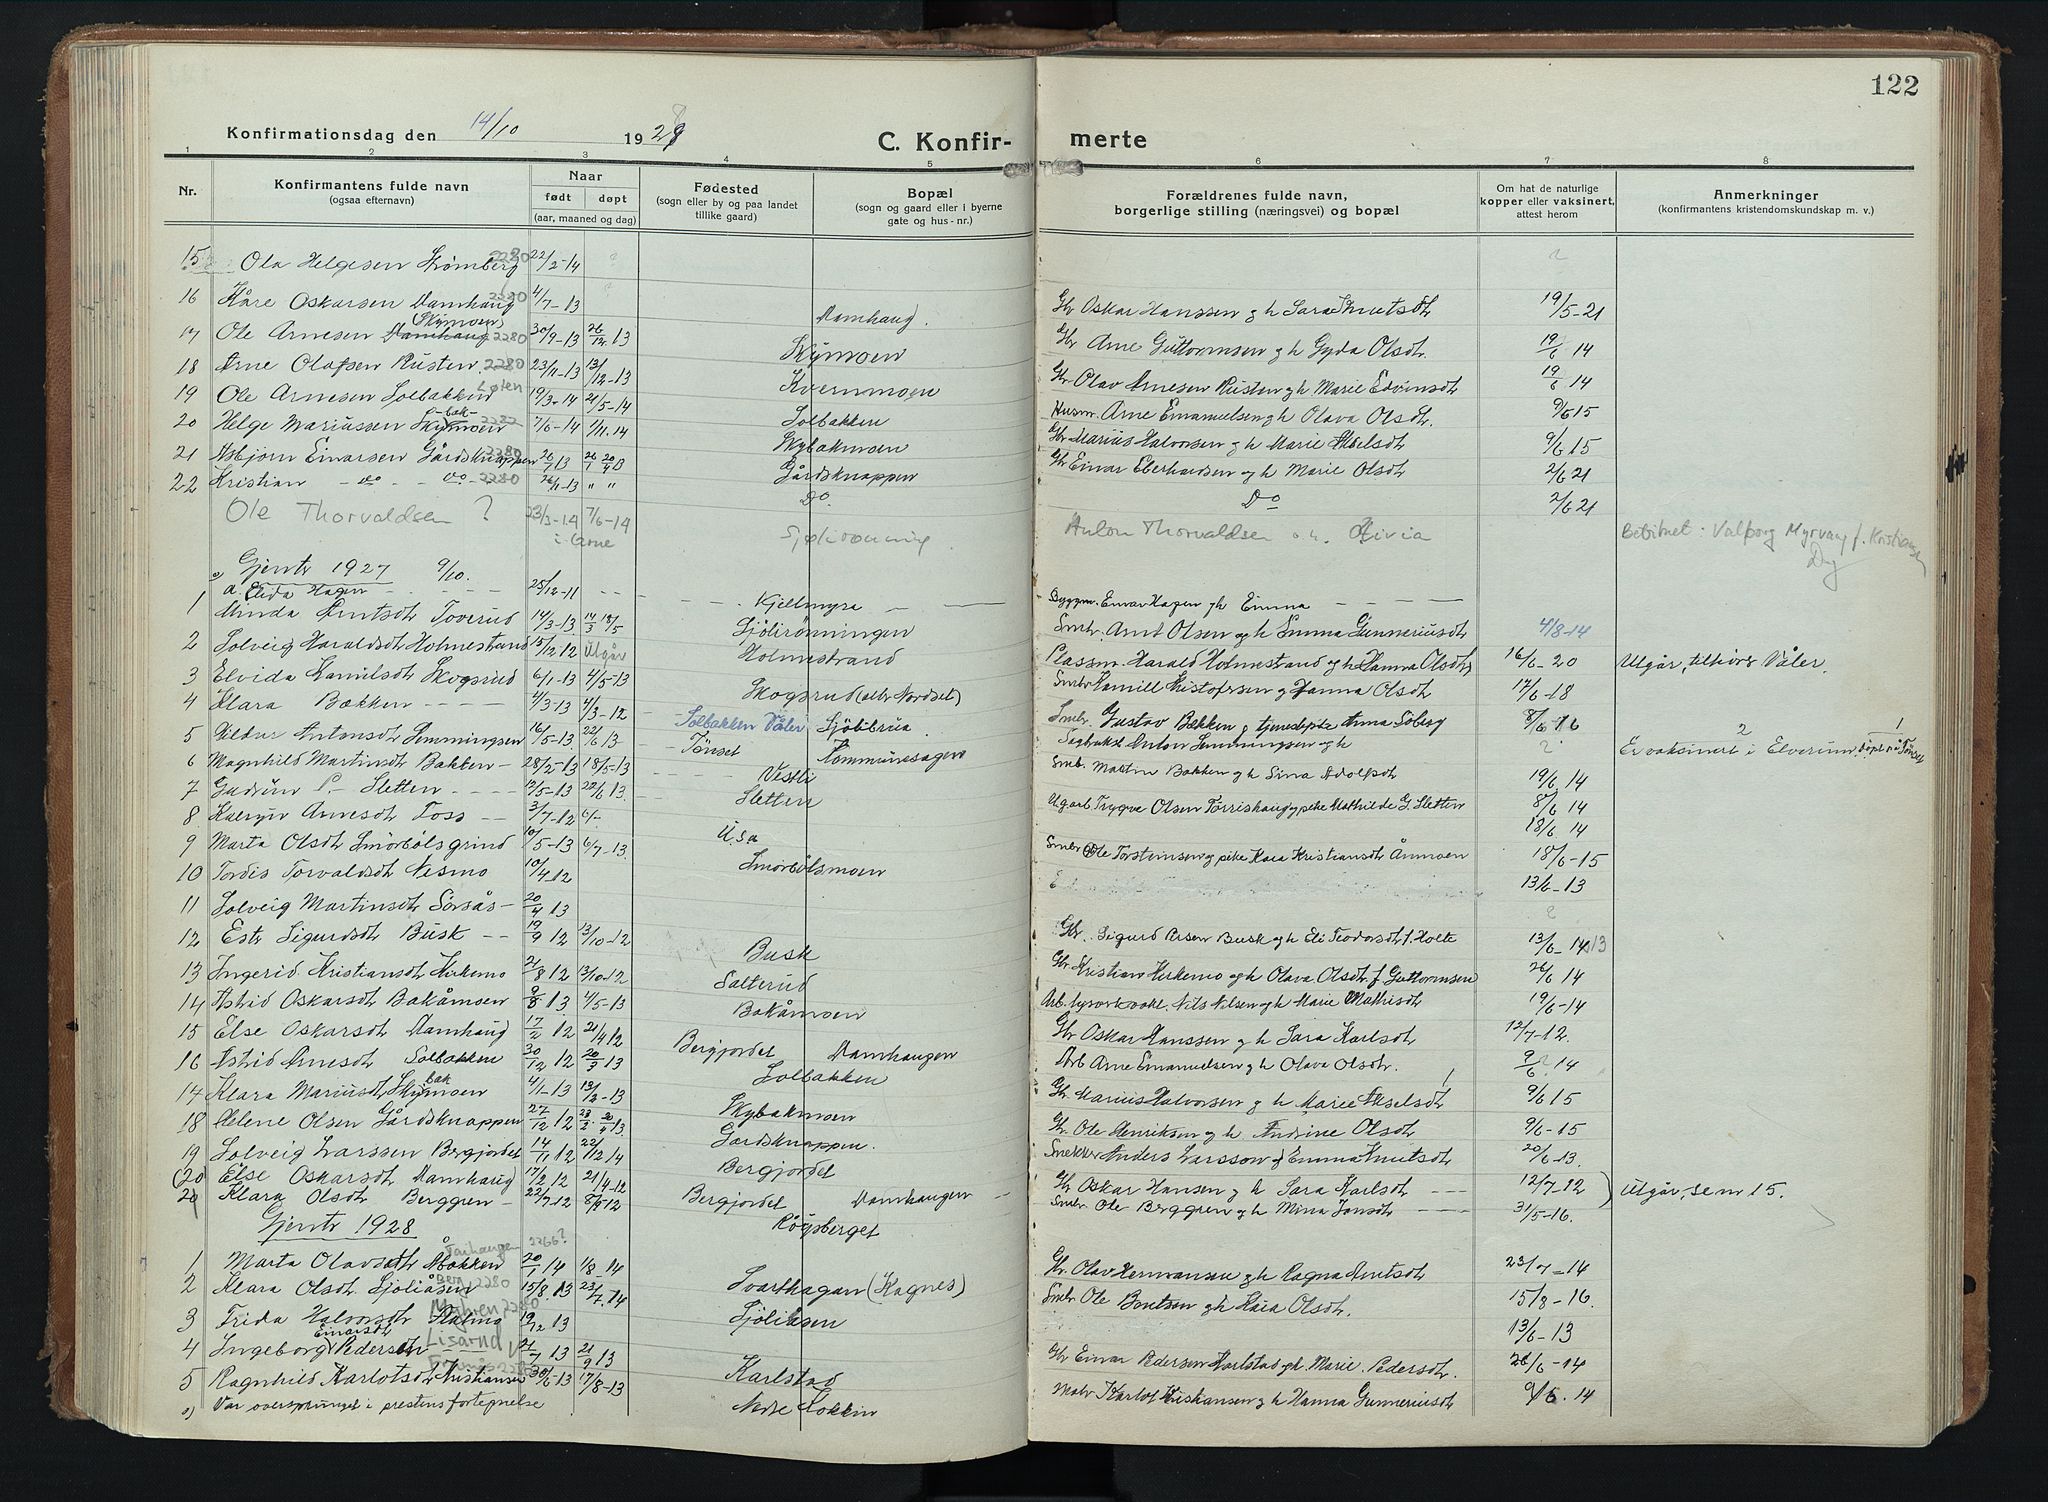 122
Konfirmationsdag den 14/10 1928 C. Konfirmerte
1 2 3 4 5 6 7 8
Nr. Konfirmantens fulde navn (ogsaa efternavn) Naar født døpt (aar, maaned og dag) Fødested (sogn eller by og paa landet tillike gaard) Bopæl (sogn og gaard eller i byerne gate og hus-nr.) Forældrenes fulde navn, borgerlige stilling (næringsvei) og bopæl Om hat de naturlige kopper eller vaksinert, attest herom Anmerkninger (konfirmantens kristendomskundskap m. v.)
15 Ola Helgesen Strømberg 2280 22/2-14 ?
16 Kåre Oskarsen Damhaug 2280 4/7-13 Damhaug. Gbr Oskar Hanssen og h Sara Knutsdtr 19/5-21
17 Ole Arnesen Damhaug (Skymoen) 2280 30/9-13 26/12 13 Skymoen Gbr Arne Guttormsen og h Gyda Olsdtr. 19/6 14
18 Arne Olafsen Rusten 2280 23/11-13 13/12-13 Kvernmoen Gbr Olav Arnesen Rusten og h Marie Edvinsdtr 19/6 14
19 Ole Arnesen Solbakken Løten 19/3-14 21/5-14 Solbakken Husm. Arne Emanuelsen og h Olava Olsdtr. 9/6 15
20 Helge Mariussen Skymoen -bak- 2280 7/6-14 7/11-14 Skybakmoen Gbr Marius Halvorsen og h Marie Akselsdtr 9/6 15
21 Asbjørn Einarsen Gårdsknappen 2280 26/7 13 Gårdsknappen Gbr Einar Eberhardsen og h Marie Olsdtr 2/6 21
22 Kristian - do - - do - 2280 26/11-13 " " Do. Do 2/6 21
Ole Thorvaldsen ? 23/3-14 7/6-14 Anton Thorvaldsen o.h. Olivia Valborg Myrvang f. Kristiansen
Gjenter 1927 9/10.
o) a. Elida Hagen - - - 25/12-11 - - Kjellmyra - - Byggm. Einar Hagen og h Emma - - - -
1 Minda Arntsdtr Toverud 14/3-13 14/3 18/5 Sjölirönningen Smbr. Arnt Olsen og h Emma Gunneriusdtr 4/8-14
2 Solveig Haraldsdtr Holmestrand 15/12-12 Utgår Holmestrand Plassm. Harald Holmestrand og h Hanna Olsdtr 16/6-20 Utgår, tilhörer Våler.
3 Elvida Kamilsdtr Skogsrud 6/1-13 4/5-13 Skogsrud Smbr Kamill Kristofersen og Hanna Olsdtr 17/6-18
4 Klara Bækken - - - - 4/3-13 4/3-12 Solbakken Våler Sjölibrua Smbr. Gustav Bækken og tjenestepike Anna Söberg 8/6-16
5 Hildur Antonsdtr Lemmingsen 16/5-13 22/6 13 Tönset Kommunesagen Sagbruksf. Anton Lemmingsen og h ? Er vaksinert i Elverum döpt i Tönset
6 Magnhild Martinsdtr Bakken - 28/2-13 18/5-13 Vestli Smb. Martin Bakken og h Sina Adolfsdtr 19/6 14
7 Gudrun P. - Sletten - - - - 12/5-13 22/6 13. Sletten Ugarb Trygve Olsen Torrishaug og pike Mathilde G. Sletten 8/6 14
8 Katryn Arnesdtr Foss - - 3/7-12 6/- U.S.A 18/6 14
9 Marta Olsdtr Smörbölsgrind 10/5-13 6/7-13. Smörbölsmoen Smbr Ole Torsteinsen og pike Kaia Kristiansdtr Ånmoen 18/6-15
10 Tordis Torvaldsdtr Nesmo 10/4-12 13/6-13
11 Solveig Martinsdtr Sörsås - 20/4 13 ?
12 Estr Sigurdsdtr Busk - - 19/9 12 13/10-12 Busk Gbr. Sigurd Arsen Busk og h Eli Teodorsdtr f. Holte 13/6-14 13
13 Ingerid Kristiansdtr Kirkemo 21/8 12 13/10-12 Salterud Gbr Kristian Kirkemo og h Olava Olsdtr f Guttormsen 26/6 14
14 Astrid Oskarsdtr Bakåmoen 9/8 13. 4/5-13 Bakåmoen Arb. lysverkvakt. Nils Nilsen og h Marie Mathisdtr 19/6-14
15 Else Oskarsdtr Damhaug 17/2 12 21/4 12 Bergjordet Damhaugen Gbr Oskar Hanssen og h Sara Karlsdtr 12/7-12.
16 Astrid Arnesdtr Solbakken 30/12 12 20/3 13 Solbakken Arb Arne Emanuelsen og h Olava Olsdtr. 9/6 14
14 Klara Mariusdtr Skymoen bak 4/1-13 13/2-13 Skybakmoen Gbr Marius Halvorsen og h Marie Akselsdtr 9/6 15
18 Helene Olsen Gårdsknappen 27/12 12 23/2 20/4 13. Gardsknappen. Gbr Ole Henriksen og h Andrine Olsdtr 9/6-15
19 Solveig Larssen Bergjordet 14/11 12 22/12 14 Bergjordet Snekker Anders Larsson og Emma Knutsdtr 20/6-13.
(20 Else Oskarsdtr Damhaug) 17/2 12 21/4-12 Bergjordet Damhaugen Gbr Oskar Hansen og h Sara Karlsdtr - - - 12/7-12 ) Utgår, se nr 15.
20 Klara Olsdtr Berggren - 22/7-12 8/9-12 Röysberget Smbr Ole Berggren og h Mina Jonsdtr - - - 31/5-16.
Gjenter 1928
1 Marta Olavsdtr Åbakken 2266? 20/1 14 1/8-14 Svarthagan (Kagnes) Gbr. Olav Hermansen og h Ragna Arntsdtr 23/7-14
2 Klara Olsdtr Sjöliåsen Berg 2280 15/8. 13 23/7. 14 Sjöliåsen Smbr Ole Berntsen og h Kaia Olsdtr. 15/8-16.
3 Frida Halvorsdtr 2280 19/12 13 13/6-13
4 Ingeborg Einarsdtr Pedersen 21/7 13 21/9 13 Karlstad Gbr Einar Pedersen Karlstad og h. Marie Pedersdtr. 26/6-14
5 Ragnhild Karlotsdtr Kristiansen 30/6-13 17/8-13 Nedre Lökkin Malv Karlot Kristiansen og h Hanna Gunneriusdtr 9/6. 14
o) Var oversprunget i prestens fortegnelse